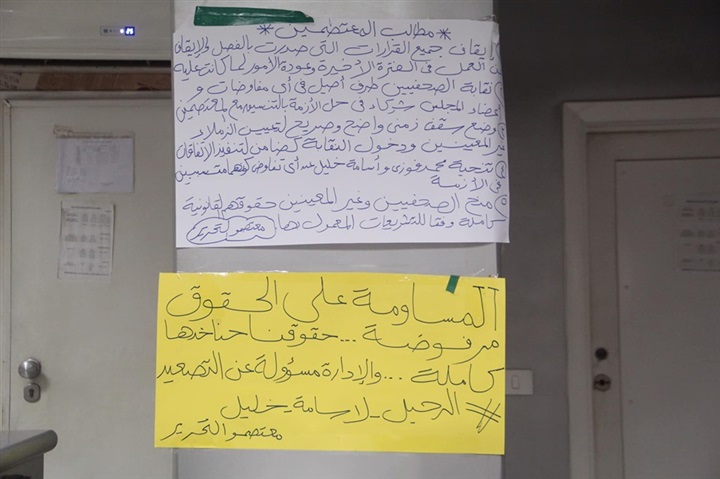 * مطالب المعتصمين *
١ إيقاف جميع القرارات التى صدرت بالفصل والإيقاف
عن العمل فى الفترة الأخيرة وعودة الأمور لما كانت عليه
نقابة الصحفيين طرف أصيل فى أى مفاوضات و
أعضاء المجلس شركاء فى حل الأزمة بالتنسيق مع المعتصمين
وضع سقف زمنى واضح وصريح لتعيين الزملاء
غير المعينين ودخول النقابة كضامن لتنفيذ الاتفاق
٤ تنحية محمد فوزى وأسامة خليل عن أى تفاوض كونهما متسببين
فى الأزمة
٥ منح الصحفيين وغير المعينين حقوقهم القانونية
كاملة وفقا للتشريعات المعمول بها معتصمو التحرير
المساومة على الحقوق
مرفوضة ... حقوقنا حناخدها
كاملة ... والإدارة مسؤولة عن التصعيد
# الرحيل_لاسامة_خليل
معتصمو التحرير